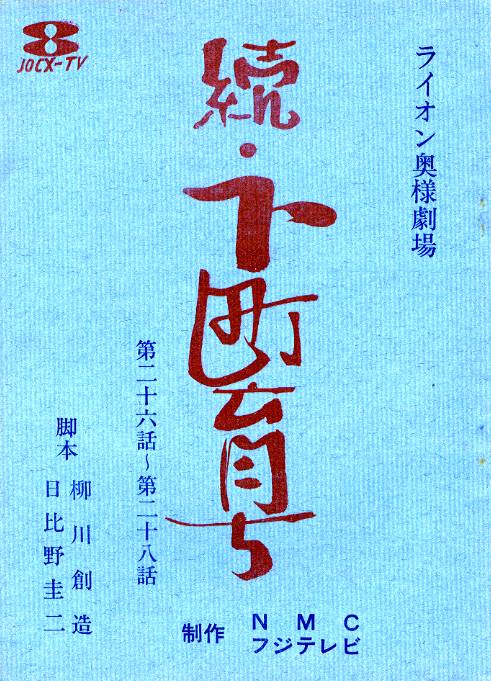 JOCX-TV
ライオン奥様劇場
続・下町育ち
第二十六話～第二十八話
脚本
柳川創造
日比野圭二
制作
NMC
フジテレビ